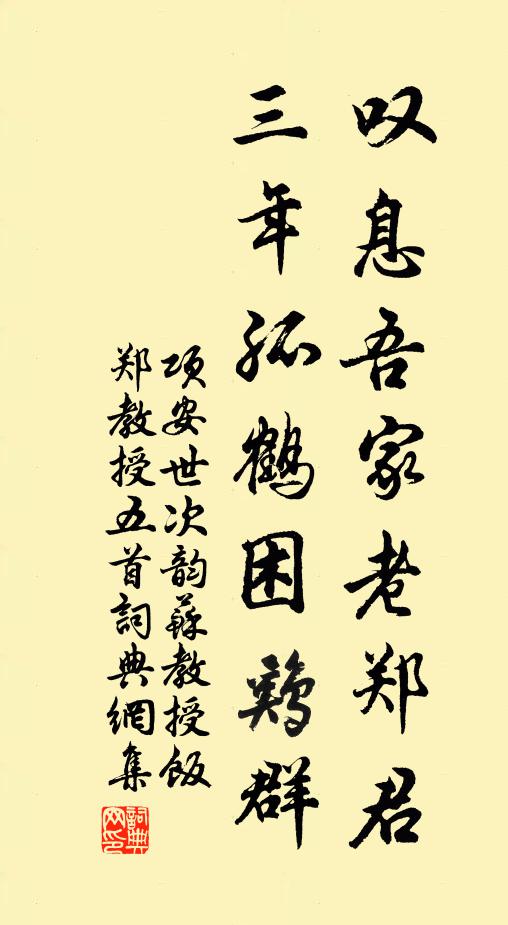 叹息吾家老郑君
三年孤鹤困鸡群
项安世次韵苏教授饭
郑教授五首詞典網集
詞典網印